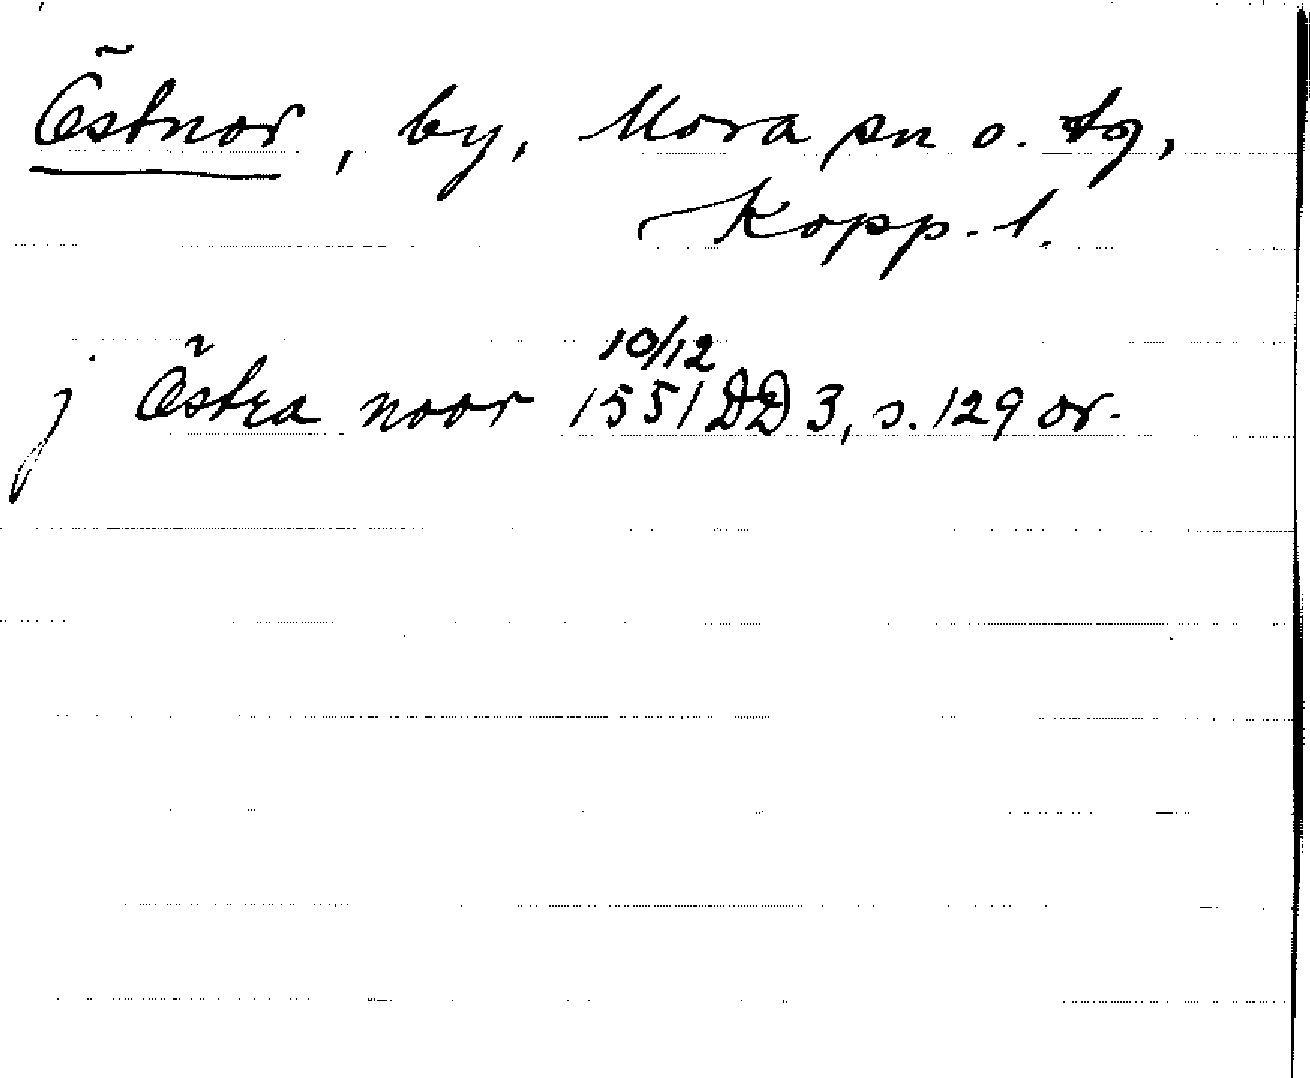 Östnor, by, Mora sn o. tg,
Kopp. l.
j Östra noor 10/12 1551 DD 3, s. 129 or.